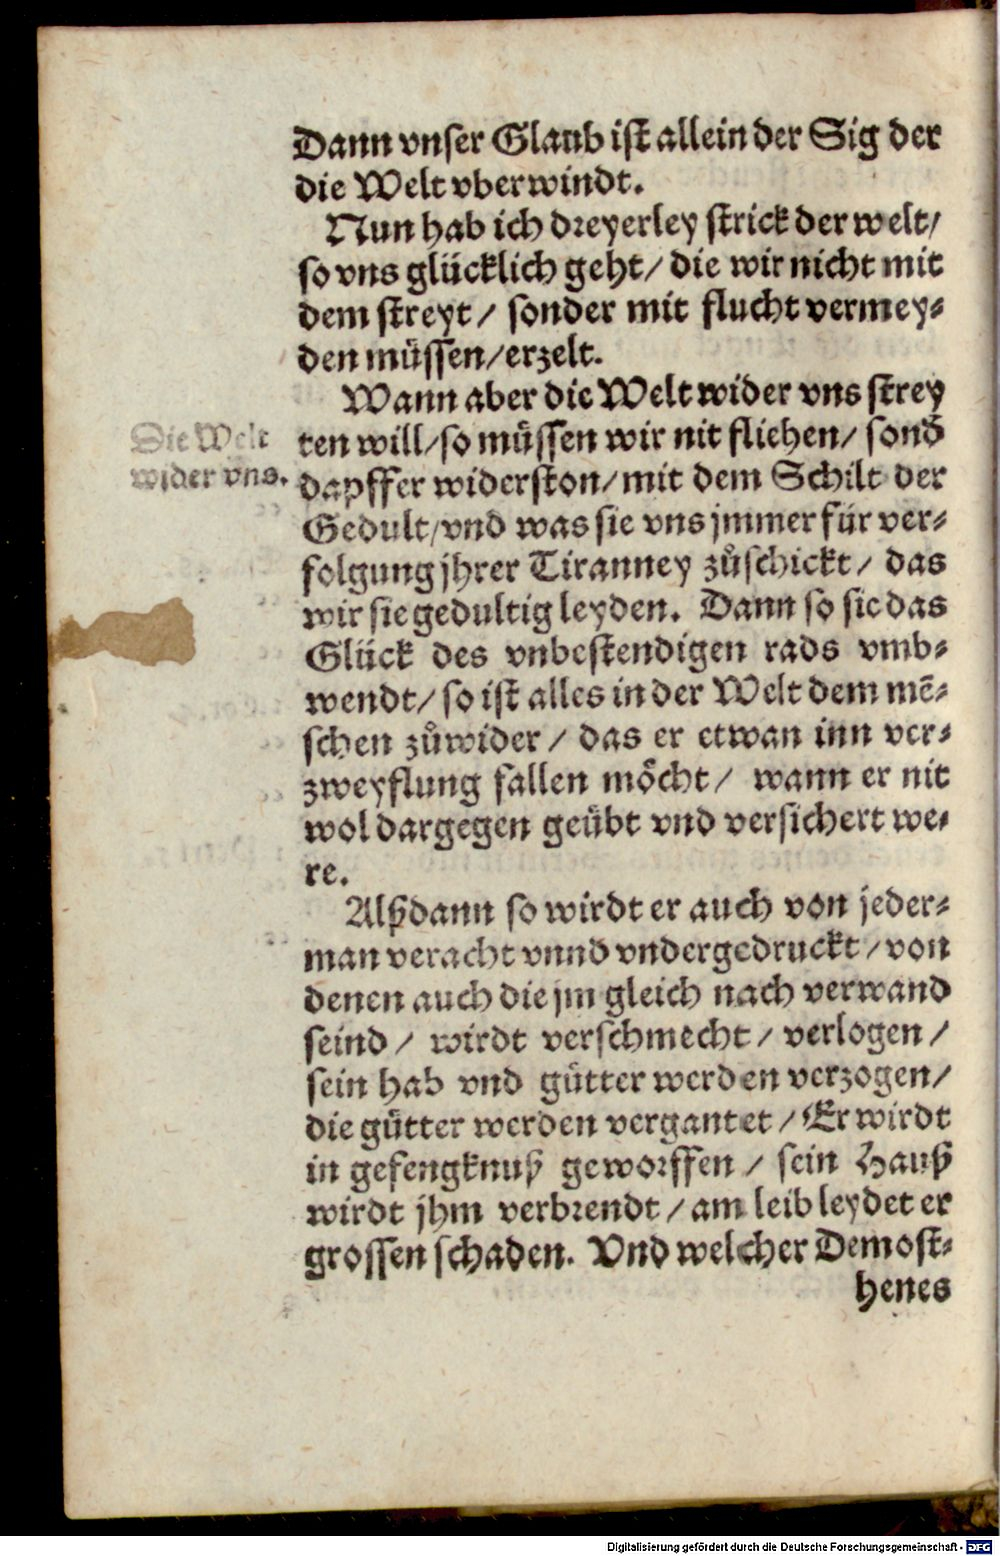 Dann vnser Glaub ist allein der Sig der
die Welt vberwindt.
Nun hab ich dreyerley strick der welt/
so vns glücklich geht/ die wir nicht mit
dem streyt/ sonder mit flucht vermey⸗
den müssen/erzelt.
Wann aber die Welt wider vns strey
Die Welt
wider vns.
ten will/so müssen wir nit fliehen/ sond̄
dapffer widerston/mit dem Schilt der
Gedult/vnd was sie vns jmmer für ver⸗
folgung jhrer Tiranney zůschickt/ das
wir sie gedultig leyden. Dann so sie das
Glück des vnbestendigen rads vmb⸗
wendt/ so ist alles in der Welt dem mē⸗
schen zůwider/ das er etwan inn ver⸗
zweyflung fallen möcht/ wann er nit
wol dargegen geübt vnd versichert we⸗
re.
Alßdann so wirdt er auch von jeder⸗
man veracht vnnd vndergedruckt/ von
denen auch die jm gleich nach verwand
seind/ wirdt verschmecht/ verlogen/
sein hab vnd gütter werden verzogen/
die gütter werden vergantet/ Er wirdt
in gefengknuß geworffen/ sein Hauß
wirdt jhm verbrendt/ am leib leydet er
grossen schaden. Vnd welcher Demost⸗
henes
Digitalisierung gefördert durch die Deutsche Forschungsgemeinschaft - DFG